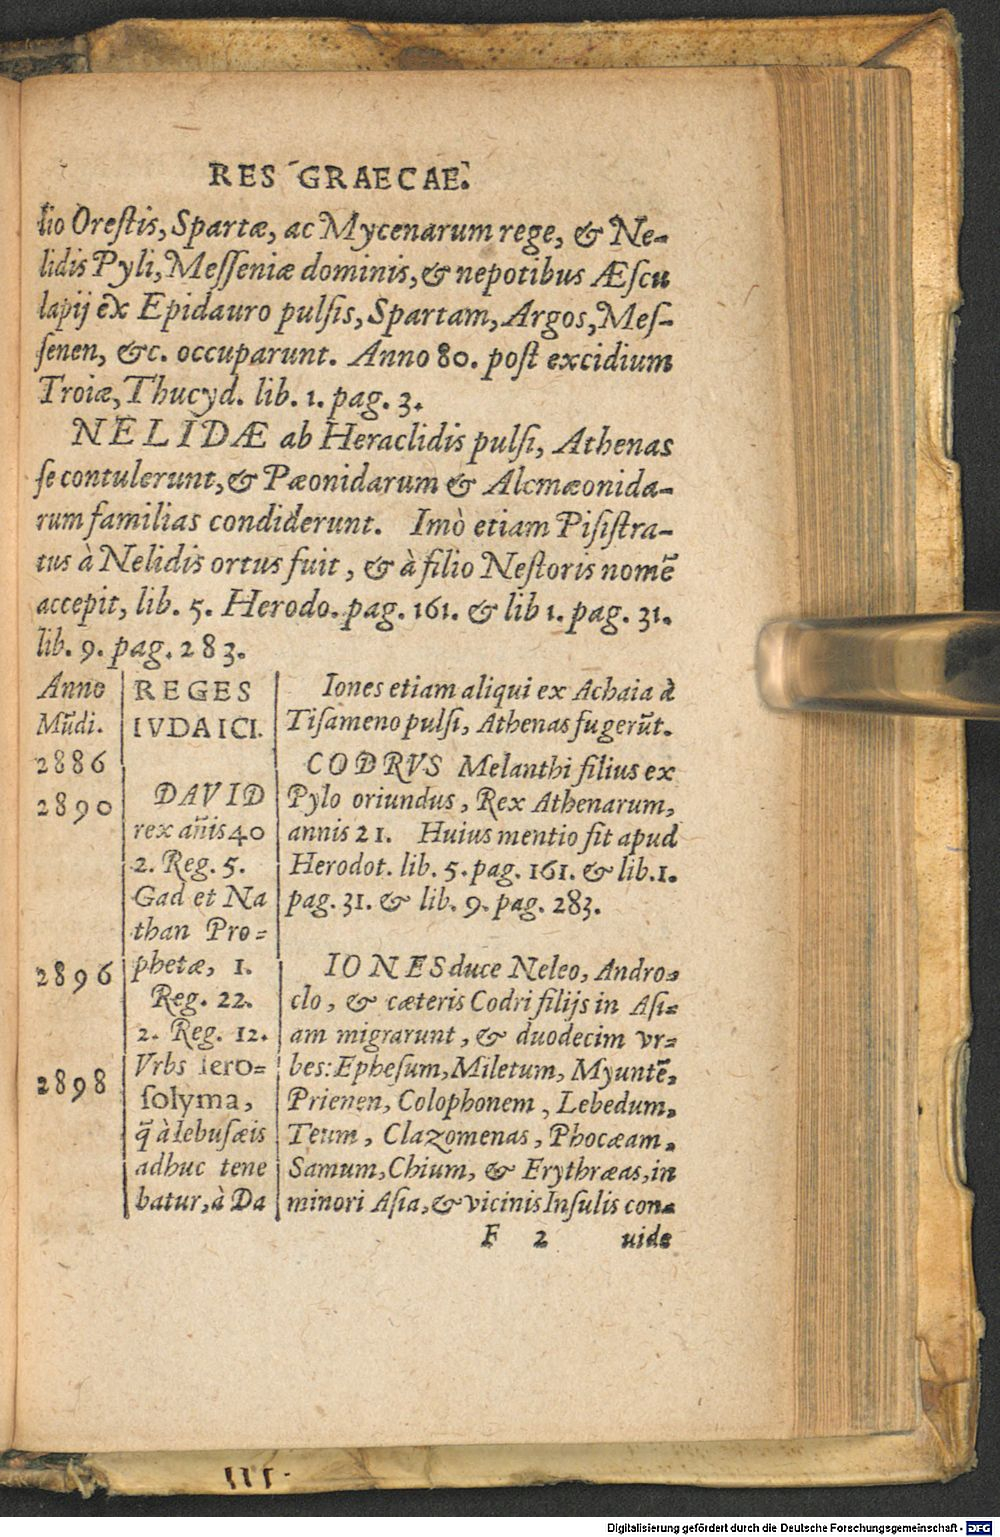 RES GRAECAE.
lio Orestis, Spartæ, ac Mycenarum rege, & Ne-
lidis Pyli, Messeniæ dominis, & nepotibus Æscu
lapij ex Epidauro pulsis, Spartam, Argos, Mes-
senen, &c. occuparunt. Anno 80. post excidium
Troiæ, Thucyd. lib. 1. pag. 3.
NELIDÆ ab Heraclidis pulsi, Athenas
se contulerunt, & Pæonidarum & Alcmæonida-
rum familias condiderunt. Imò etiam Pisistra-
tus à Nelidis ortus fuit, & à filio Nestoris nomē
accepit, lib. 5. Herodo. pag. 161. & lib 1. pag. 31.
lib. 9. pag. 283.
Anno
Mūdi.
2886
2890
2896
2898
REGES
IVDAICI.
DAVID
rex an̄is 40
2. Reg. 5.
Gad et Na
than Pro=
phetæ, 1.
Reg. 22.
2. Reg. 12.
Vrbs Iero=
solyma,
q̄ à Iebusæis
adhuc tene
batur, à Da
Iones etiam aliqui ex Achaia à
Tisameno pulsi, Athenas fugerūt.
CODRVS Melanthi filius ex
Pylo oriundus, Rex Athenarum,
annis 21. Huius mentio fit apud
Herodot. lib. 5. pag. 161. & lib. 1.
pag. 31. & lib. 9. pag. 283.
IONES duce Neleo, Andro=
clo, & cæteris Codri filijs in Asi=
am migrarunt, & duodecim vr=
bes: Ephesum, Miletum, Myuntē,
Prienen, Colophonem, Lebedum,
Teum, Clazomenas, Phocæam,
Samum, Chium, & Erythræas, in
minori Asia, & vicinis Insulis con=
F 2 uide
III.
Digitalisierung gefördert durch die Deutsche Forschungsgemeinschaft - DFG